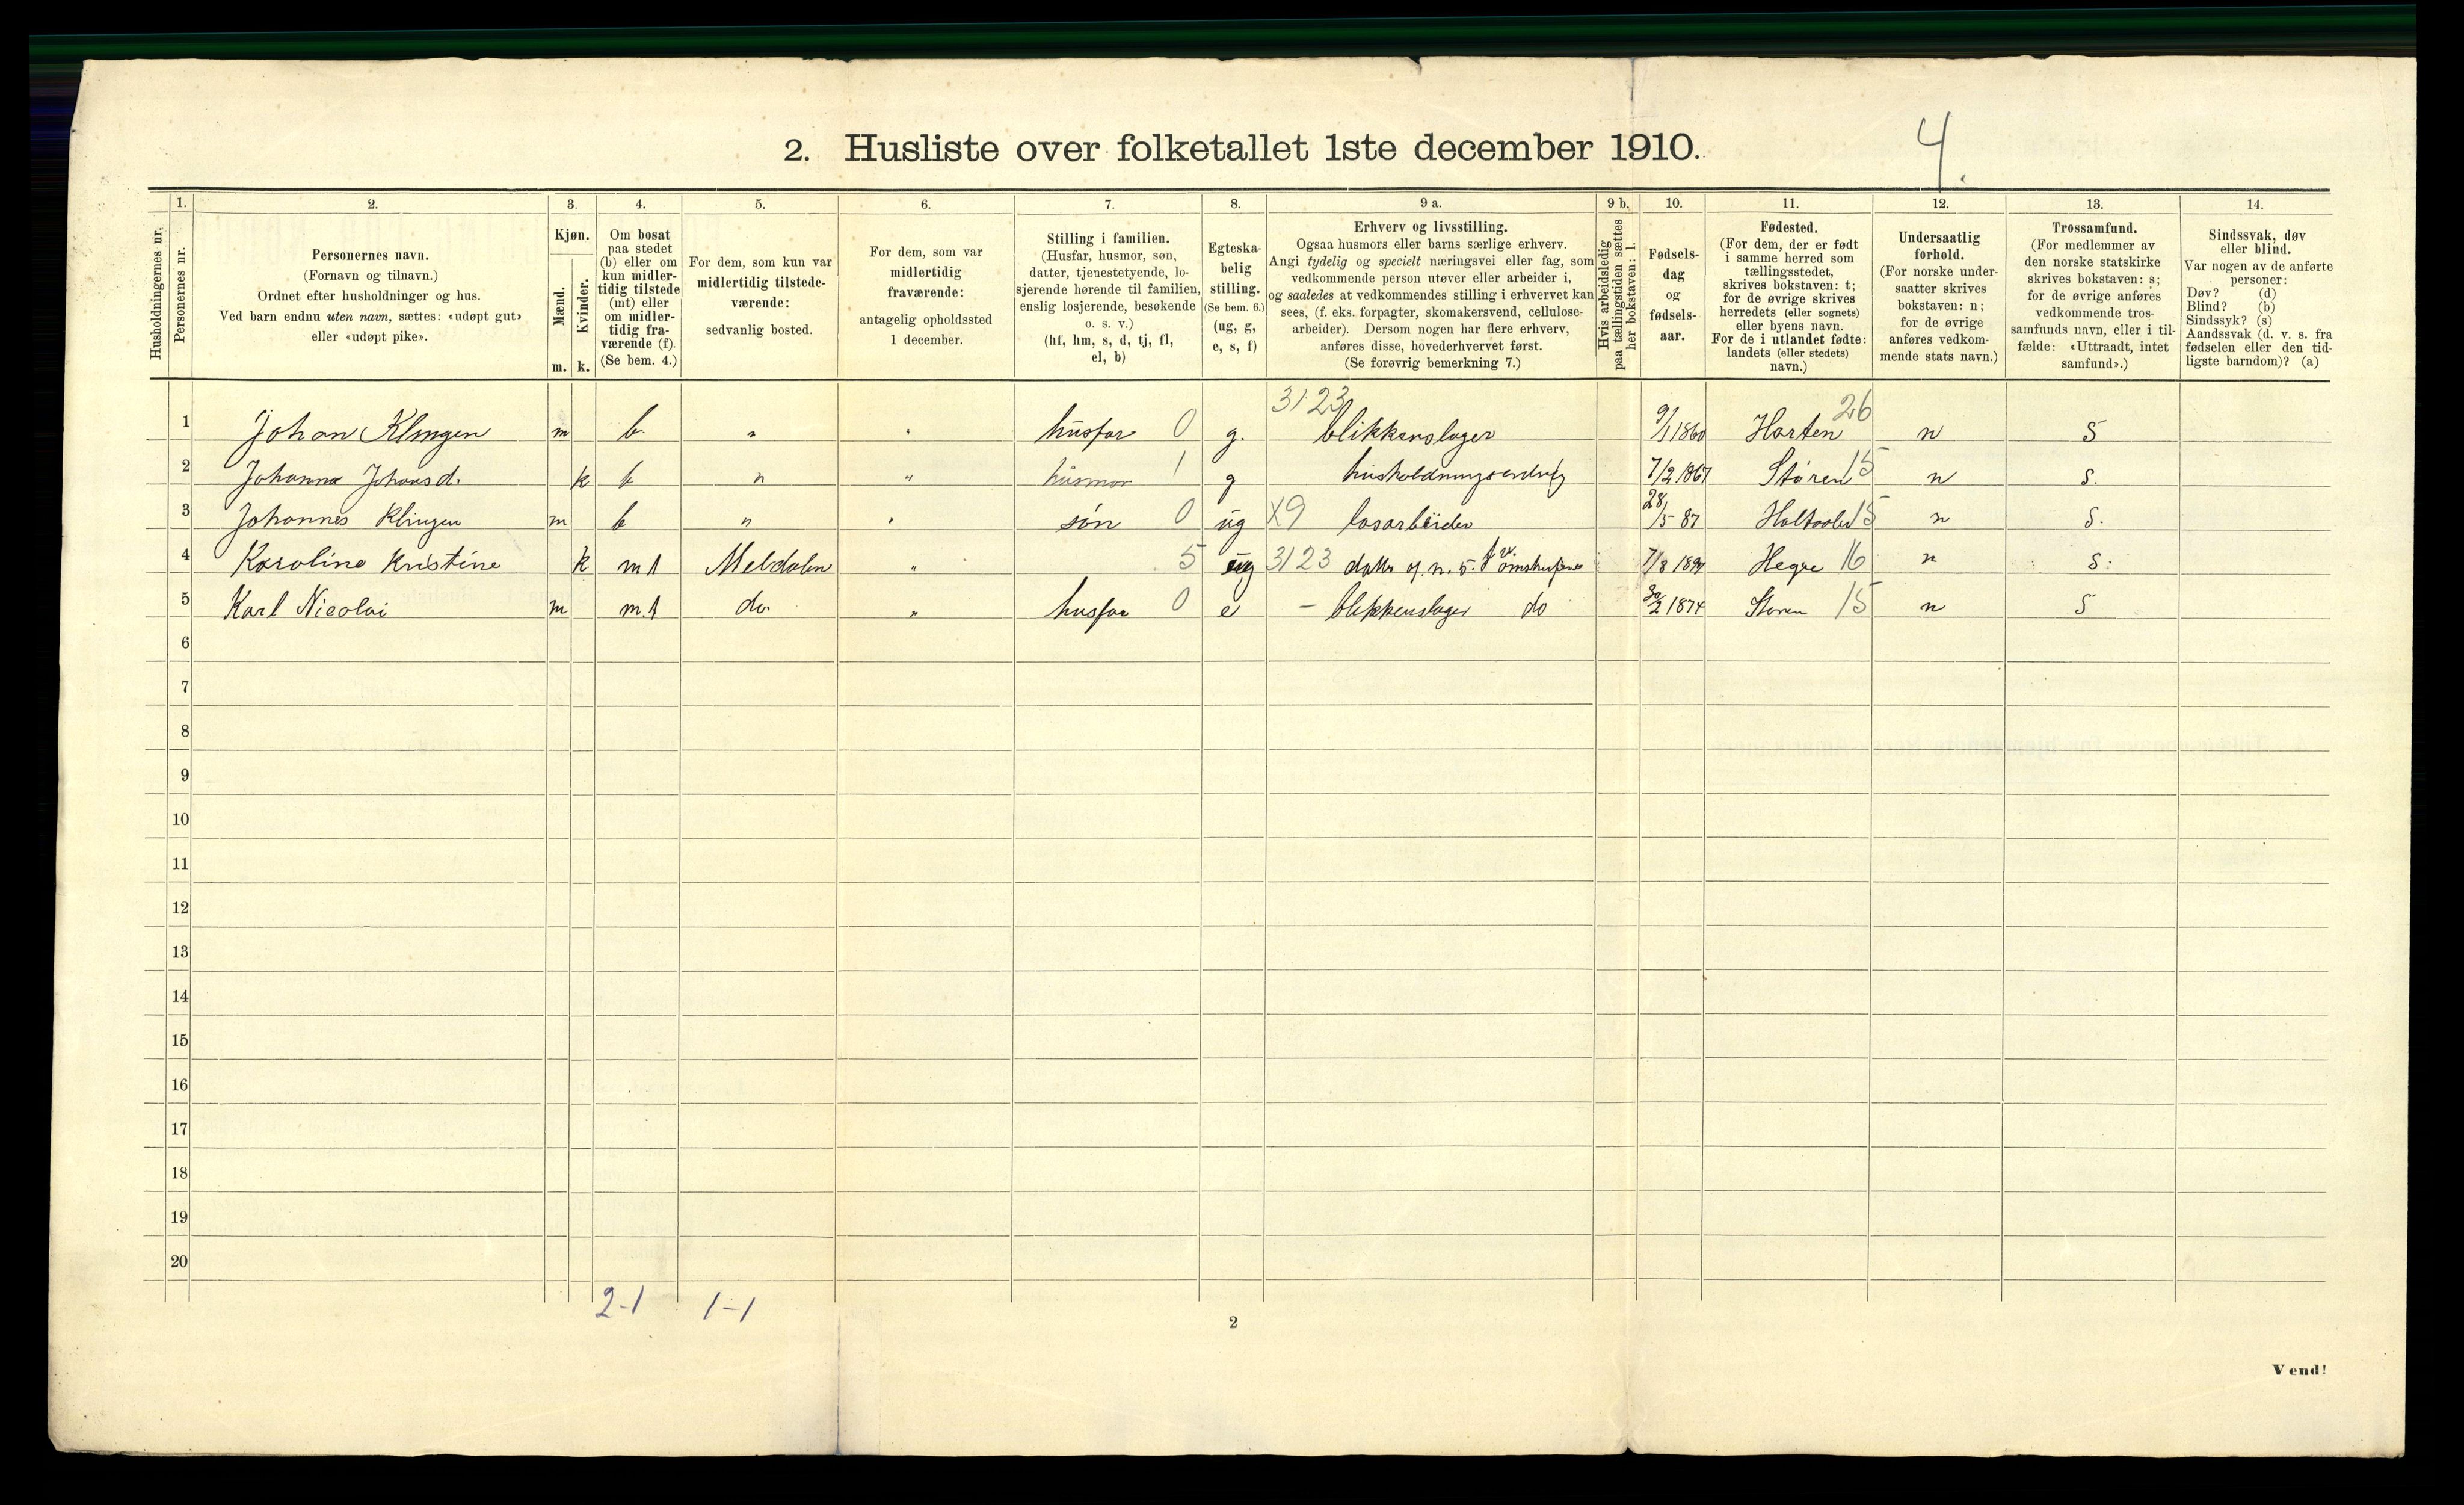 2. Husliste over folketallet 1ste december 1910.
4.
Husholdningernes nr.
1.
Personernes nr.
2.
Personernes navn.
(Fornavn og tilnavn.)
Ordnet efter husholdninger og hus.
Ved barn endnu uten navn, sættes: «udøpt gut»
eller «udøpt pike».
3.
Kjøn.
Mænd.
Kvinder.
m. k.
4.
Om bosat
paa stedet
(b) eller om
kun midler-
tidig tilstede
(mt) eller
om midler-
tidig fra-
værende (f).
(Se bem. 4.)
5.
For dem, som kun var
midlertidig tilstede-
værende:
sedvanlig bosted.
6.
For dem, som var
midlertidig
fraværende:
antagelig opholdssted
1 december.
7.
Stilling i familien.
(Husfar, husmor, søn,
datter, tjenestetyende, lo-
sjerende hørende til familien,
enslig losjerende, besøkende
o. s. v.)
(hf, hm, s, d, tj, fl,
el, b)
8.
Egteska-
belig
stilling.
(Se bem. 6.)
(ug, g,
e, s, f)
9 a.
Erhverv og livsstilling.
Ogsaa husmors eller barns særlige erhverv.
Angi tydelig og specielt næringsvei eller fag, som
vedkommende person utøver eller arbeider i,
og saaledes at vedkommendes stilling i erhvervet kan
sees, (f. eks. forpagter, skomakersvend, cellulose-
arbeider). Dersom nogen har flere erhverv,
anføres disse, hovederhvervet først.
(Se forøvrig bemerkning 7.)
9 b.
Hvis arbeidsledig
paa tællingstiden sættes
her bokstaven: l.
10.
Fødsels-
dag
og
fødsels-
aar.
11.
Fødested.
(For dem, der er født
i samme herred som
tællingsstedet,
skrives bokstaven: t;
for de øvrige skrives
herredets (eller sognets)
eller byens navn.
For de i utlandet fødte:
landets (eller stedets)
navn.)
12.
Undersaatlig
forhold.
(For norske under-
saatter skrives
bokstaven: n;
for de øvrige
anføres vedkom-
mende stats navn.)
13.
Trossamfund.
(For medlemmer av
den norske statskirke
skrives bokstaven: s;
for de øvrige anføres
vedkommende tros-
samfunds navn, eller i til-
fælde: «Uttraadt, intet
samfund».)
14.
Sindssvak, døv
eller blind.
Var nogen av de anførte
personer:
Døv? (d)
Blind? (b)
Sindssyk? (s)
Aandssvak (d. v. s. fra
fødselen eller den tid-
ligste barndom)? (a)
3123 26
1 Johan Klingen m b. " " husfar 0 g. blikkenslager 9/1 1860 n S
2 Johanna Johansd. k b " " husmor 1 g 7/2 1867 Støren 15 n S.
3 Johannes Klingen m b " " søn 0 ug X9 løsarbeider 28/5 87 15 n S.
4 Karoline Kristine k mt Meldalen " 5 ug 3123 datter af n. 5. Hegre 16 n S.
5 Karl Nicolai m m.t do. " husfar 0 e – blikkenslager do 1874 Støren 15 n S
6
7
8
9
10
11
12
13
14
15
16
17
18
19
20
2-1 1-1
2
Vend!